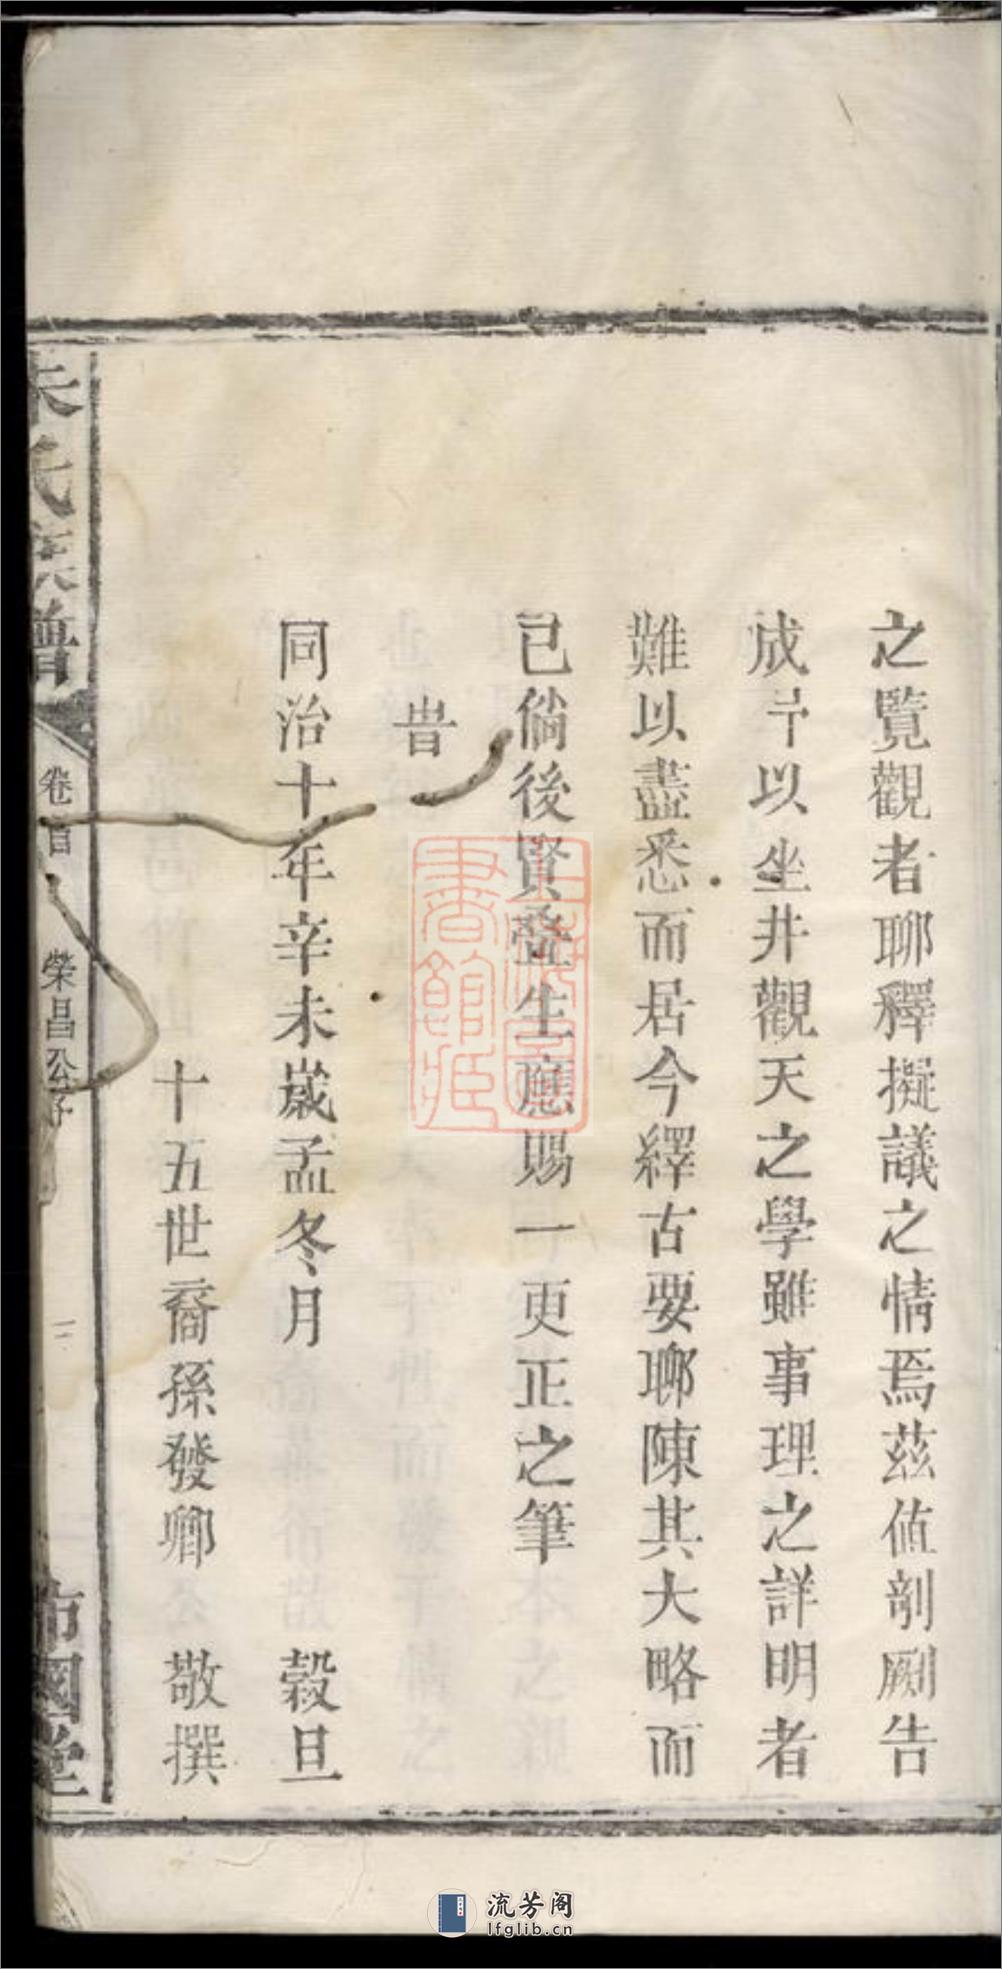 之覽觀者聊釋擬議之情焉茲值剞劂告
成予以坐井觀天之學雖事理之詳明者
難以盡悉而居今繹古要聊陳其大略而
已倘後賢叠生應賜一更正之筆
旹
同治十年辛未嵗孟冬月 穀旦
十五世裔孫發卿 敬撰
朱氏族譜 卷首 榮昌公序 二 佈國堂
上海圖書館藏
流芳阁
lfglib.cn